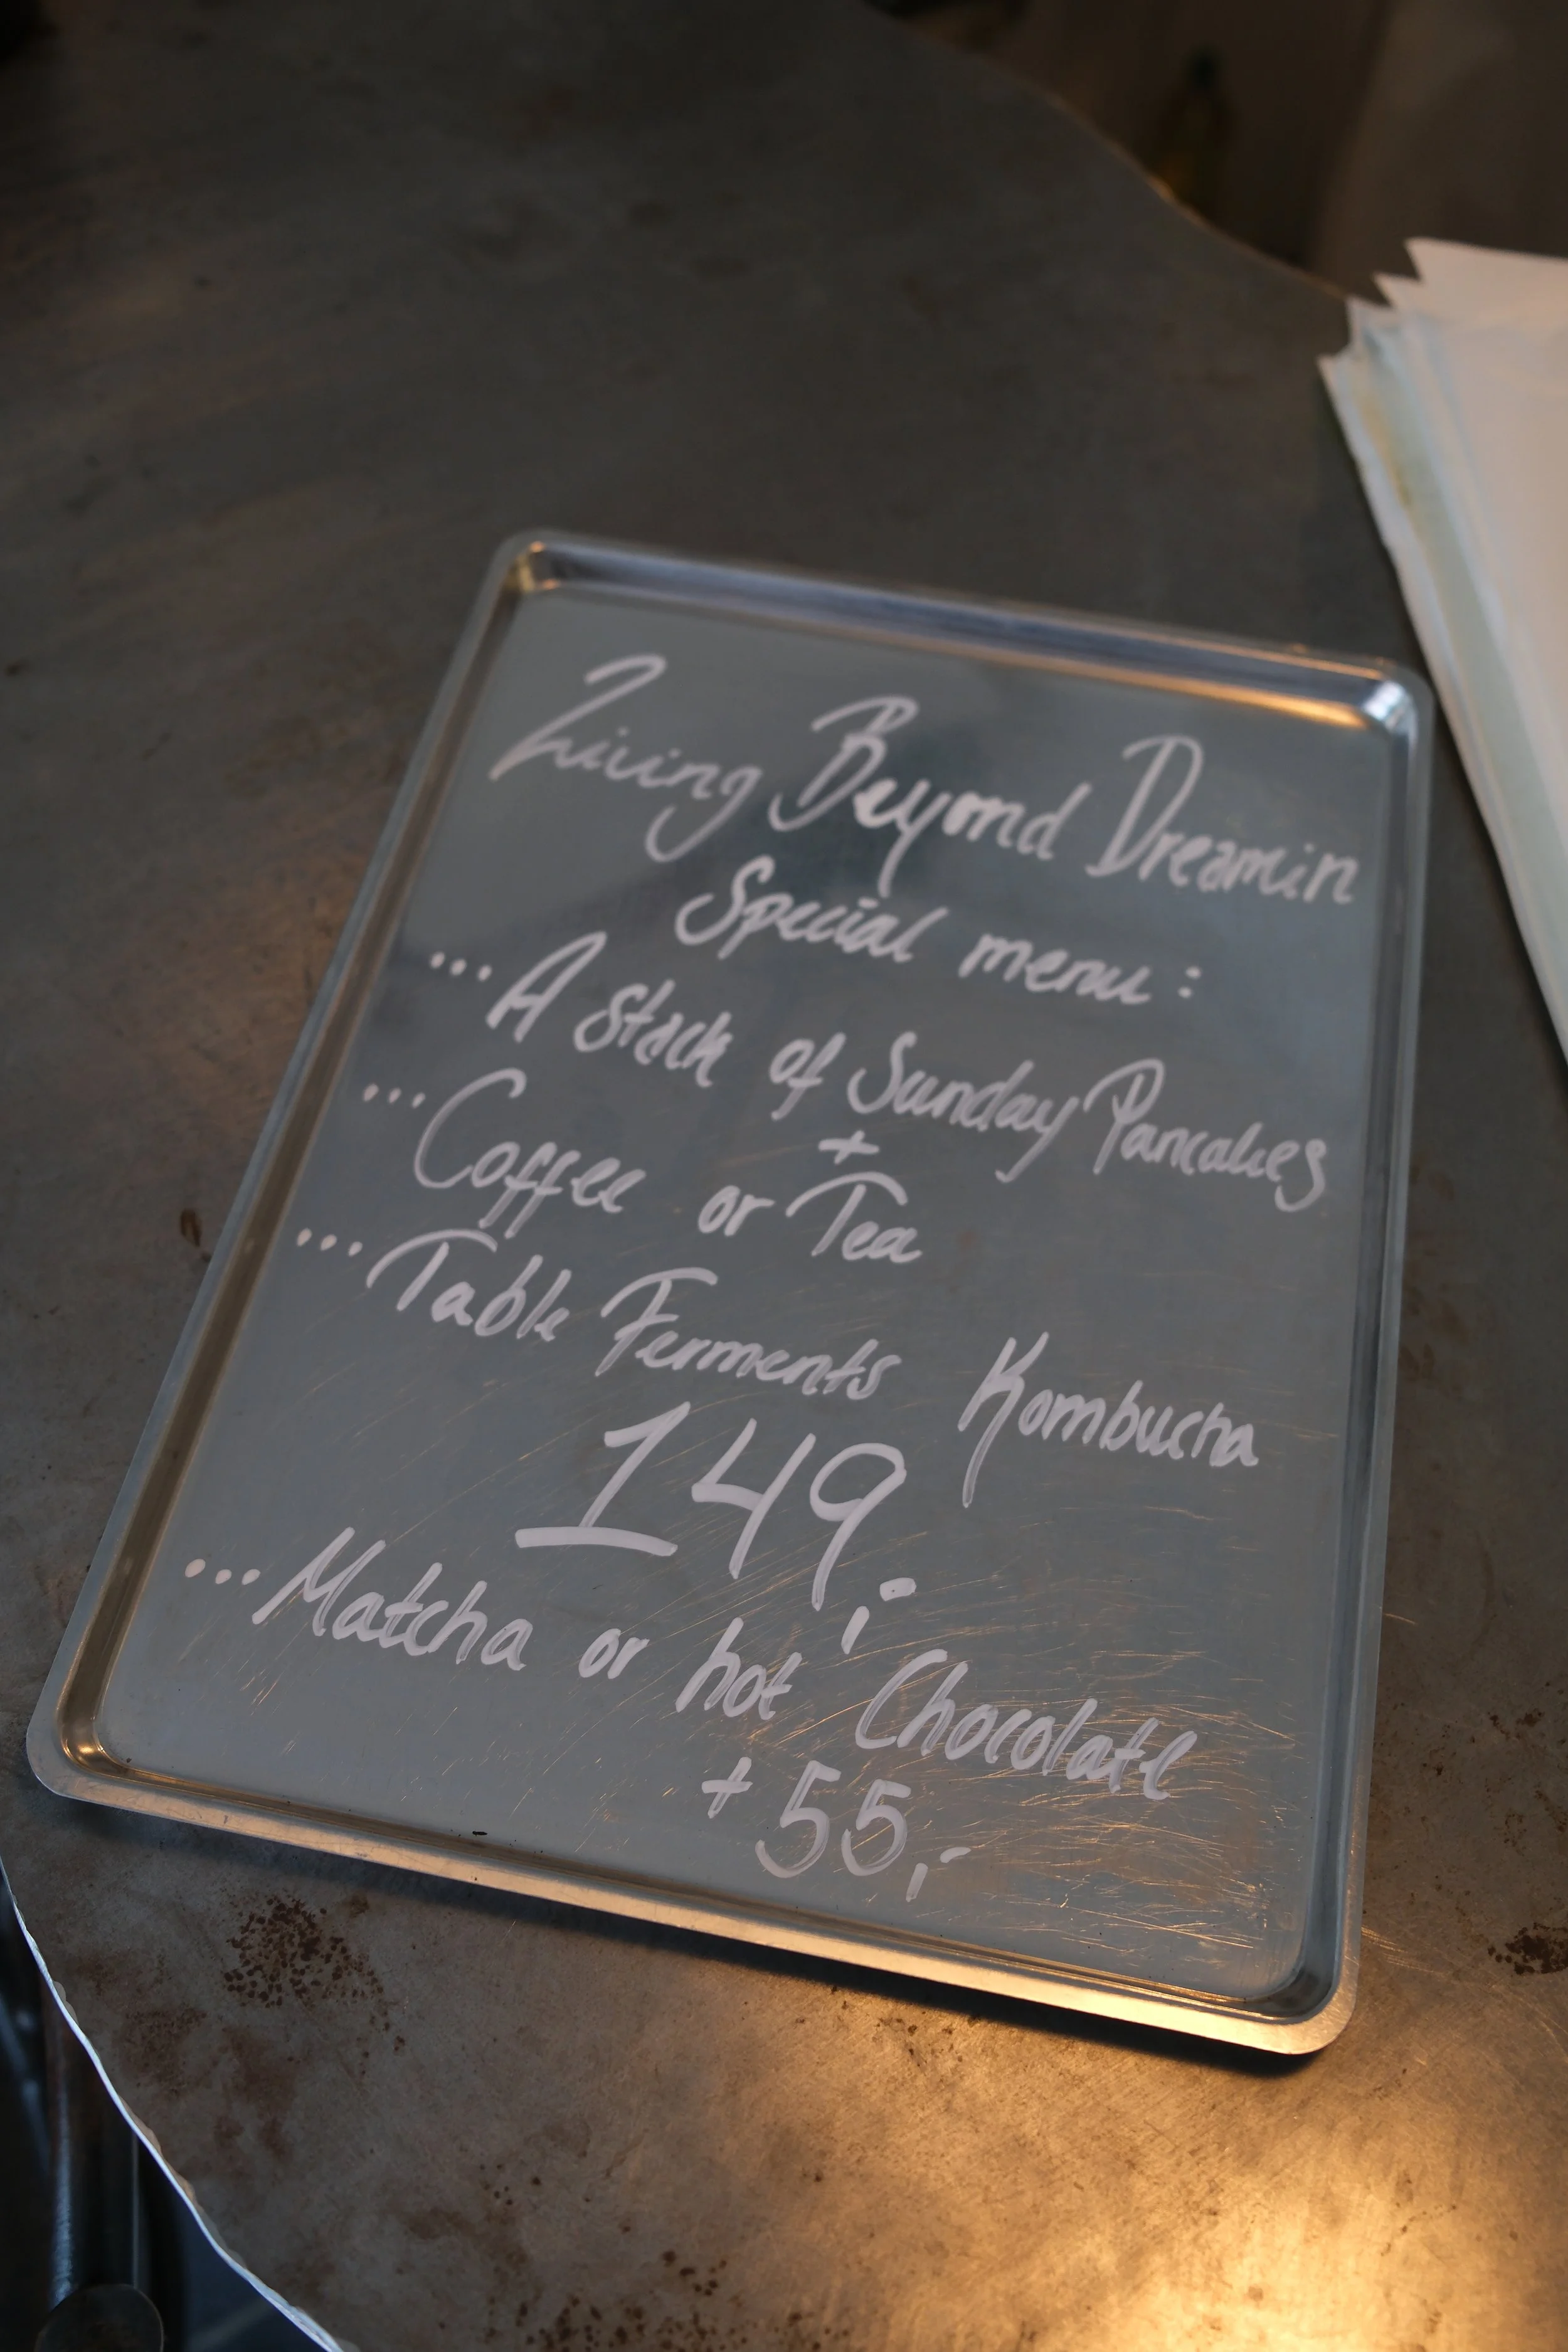 Living Beyond Dreamin
Special menu:
...A Stack of Sunday Pancakes
+
...Coffee or Tea
...Table Ferments Kombucha
149,-
...Matcha or hot Chocolate
+55,-